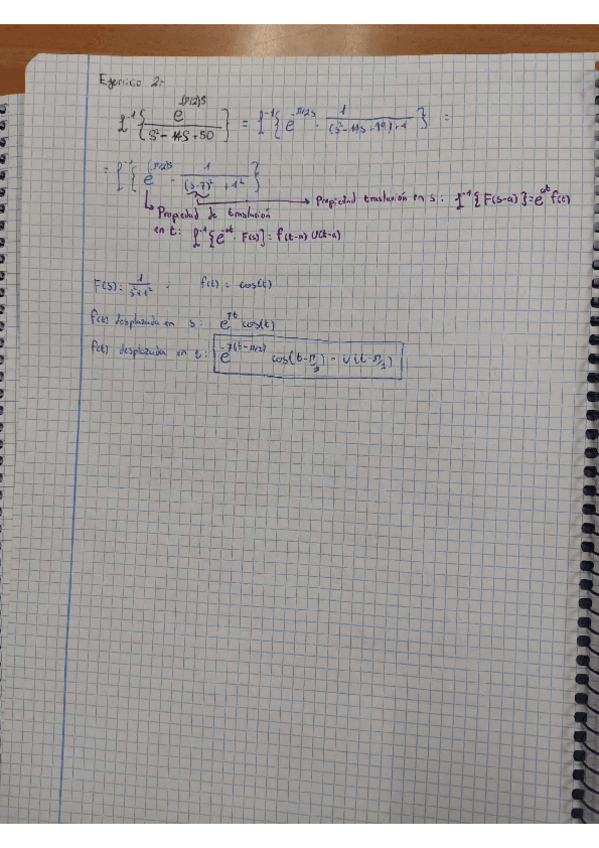 Ejercicio 2:-
L⁻¹{ e^(-(π/2)s) / (s² - 14s + 50) } = L⁻¹{ e^(-π/2 s) · 1 / ((s² - 14s + 49) + 1) } =
= L⁻¹{ e^(-(π/2)s) · 1 / ((s-7)² + 1²) }
→ Propiedad traslación en s: L⁻¹{F(s-a)} = e^(at) f(t)
↳ Propiedad de traslación
en t: L⁻¹{e^(-at) · F(s)} = f(t-a) U(t-a)
F(s) = 1 / (s²+1²) ; f(t) = cos(t)
f(t) desplazada en s: e^(7t) cos(t)
f(t) desplazada en t: e^(-7(t-π/2)) cos(t-π/2) - U(t-π/2)